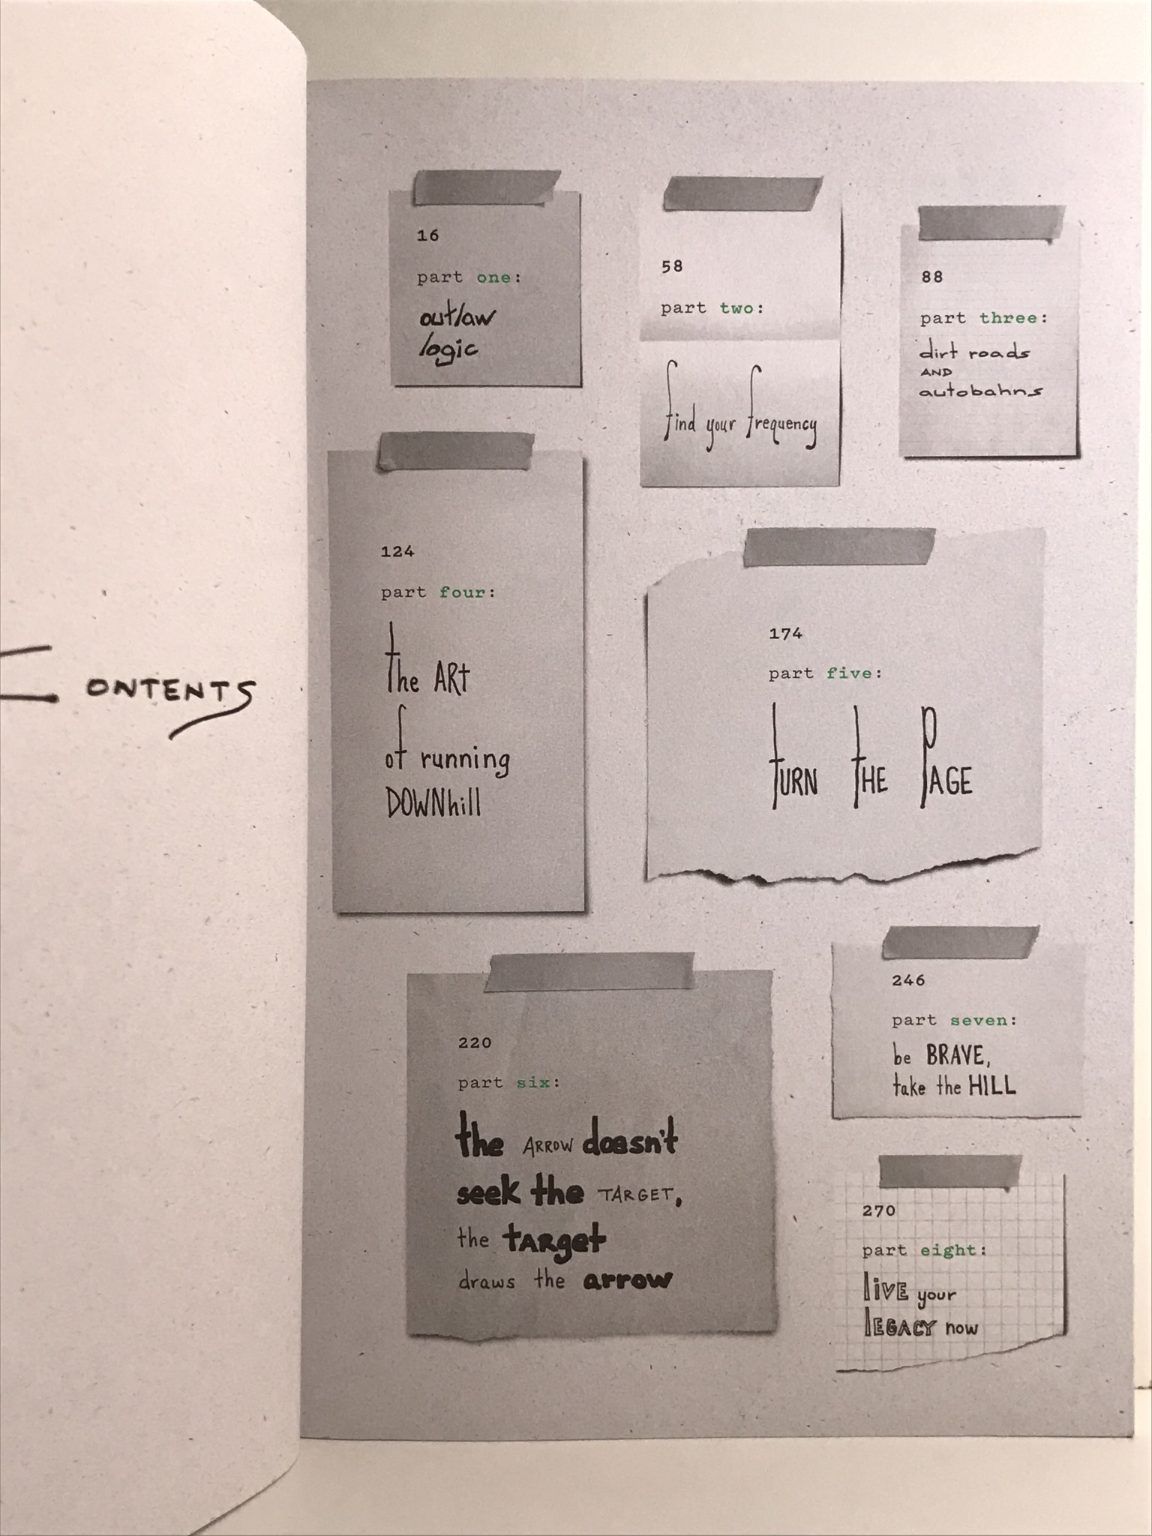 CONTENTS
16
part one:
outlaw
logic
58
part two:
find your frequency
88
part three:
dirt roads
AND
autobahns
124
part four:
the ARt
of running
DOWNhill
174
part five:
tURN tHE PAGE
220
part six:
the ARROW doesn't
seek the TARGET,
the tARget
draws the arrow
246
part seven:
be BRAVE,
take the HILL
270
part eight:
liVE your
lEGACY now